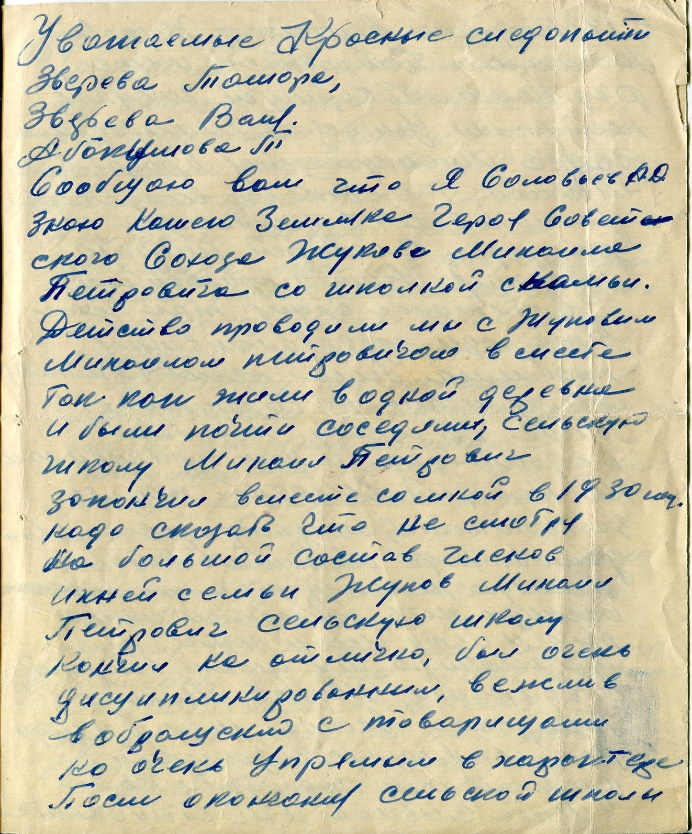 Уважаемые Красные следопыты
Зверева Томора,
Зверева Валя.
Абакумова Т
Сообщаю вам что я Соловьев АД
знаю нашего Земляка Героя Советс
ского Союза Жукова Михаила
Петровича со школной скамьи.
Детство проводили мы с Жуковым
Михаилом петровичом вместе
так как жили в одной деревне
и были почти соседями, Сельскую
школу Михаил Петрович
закончил вместе со мной в 1930 год.
надо сказать что не смотря
на большой состав членов
ихней семьи Жуков Михаил
Петрович сельскую школу
кончил на отлично, был очень
дисциплинированным, вежлив
в обращении с товарищами
но очень упрямым в характере
После окончания сельской школы